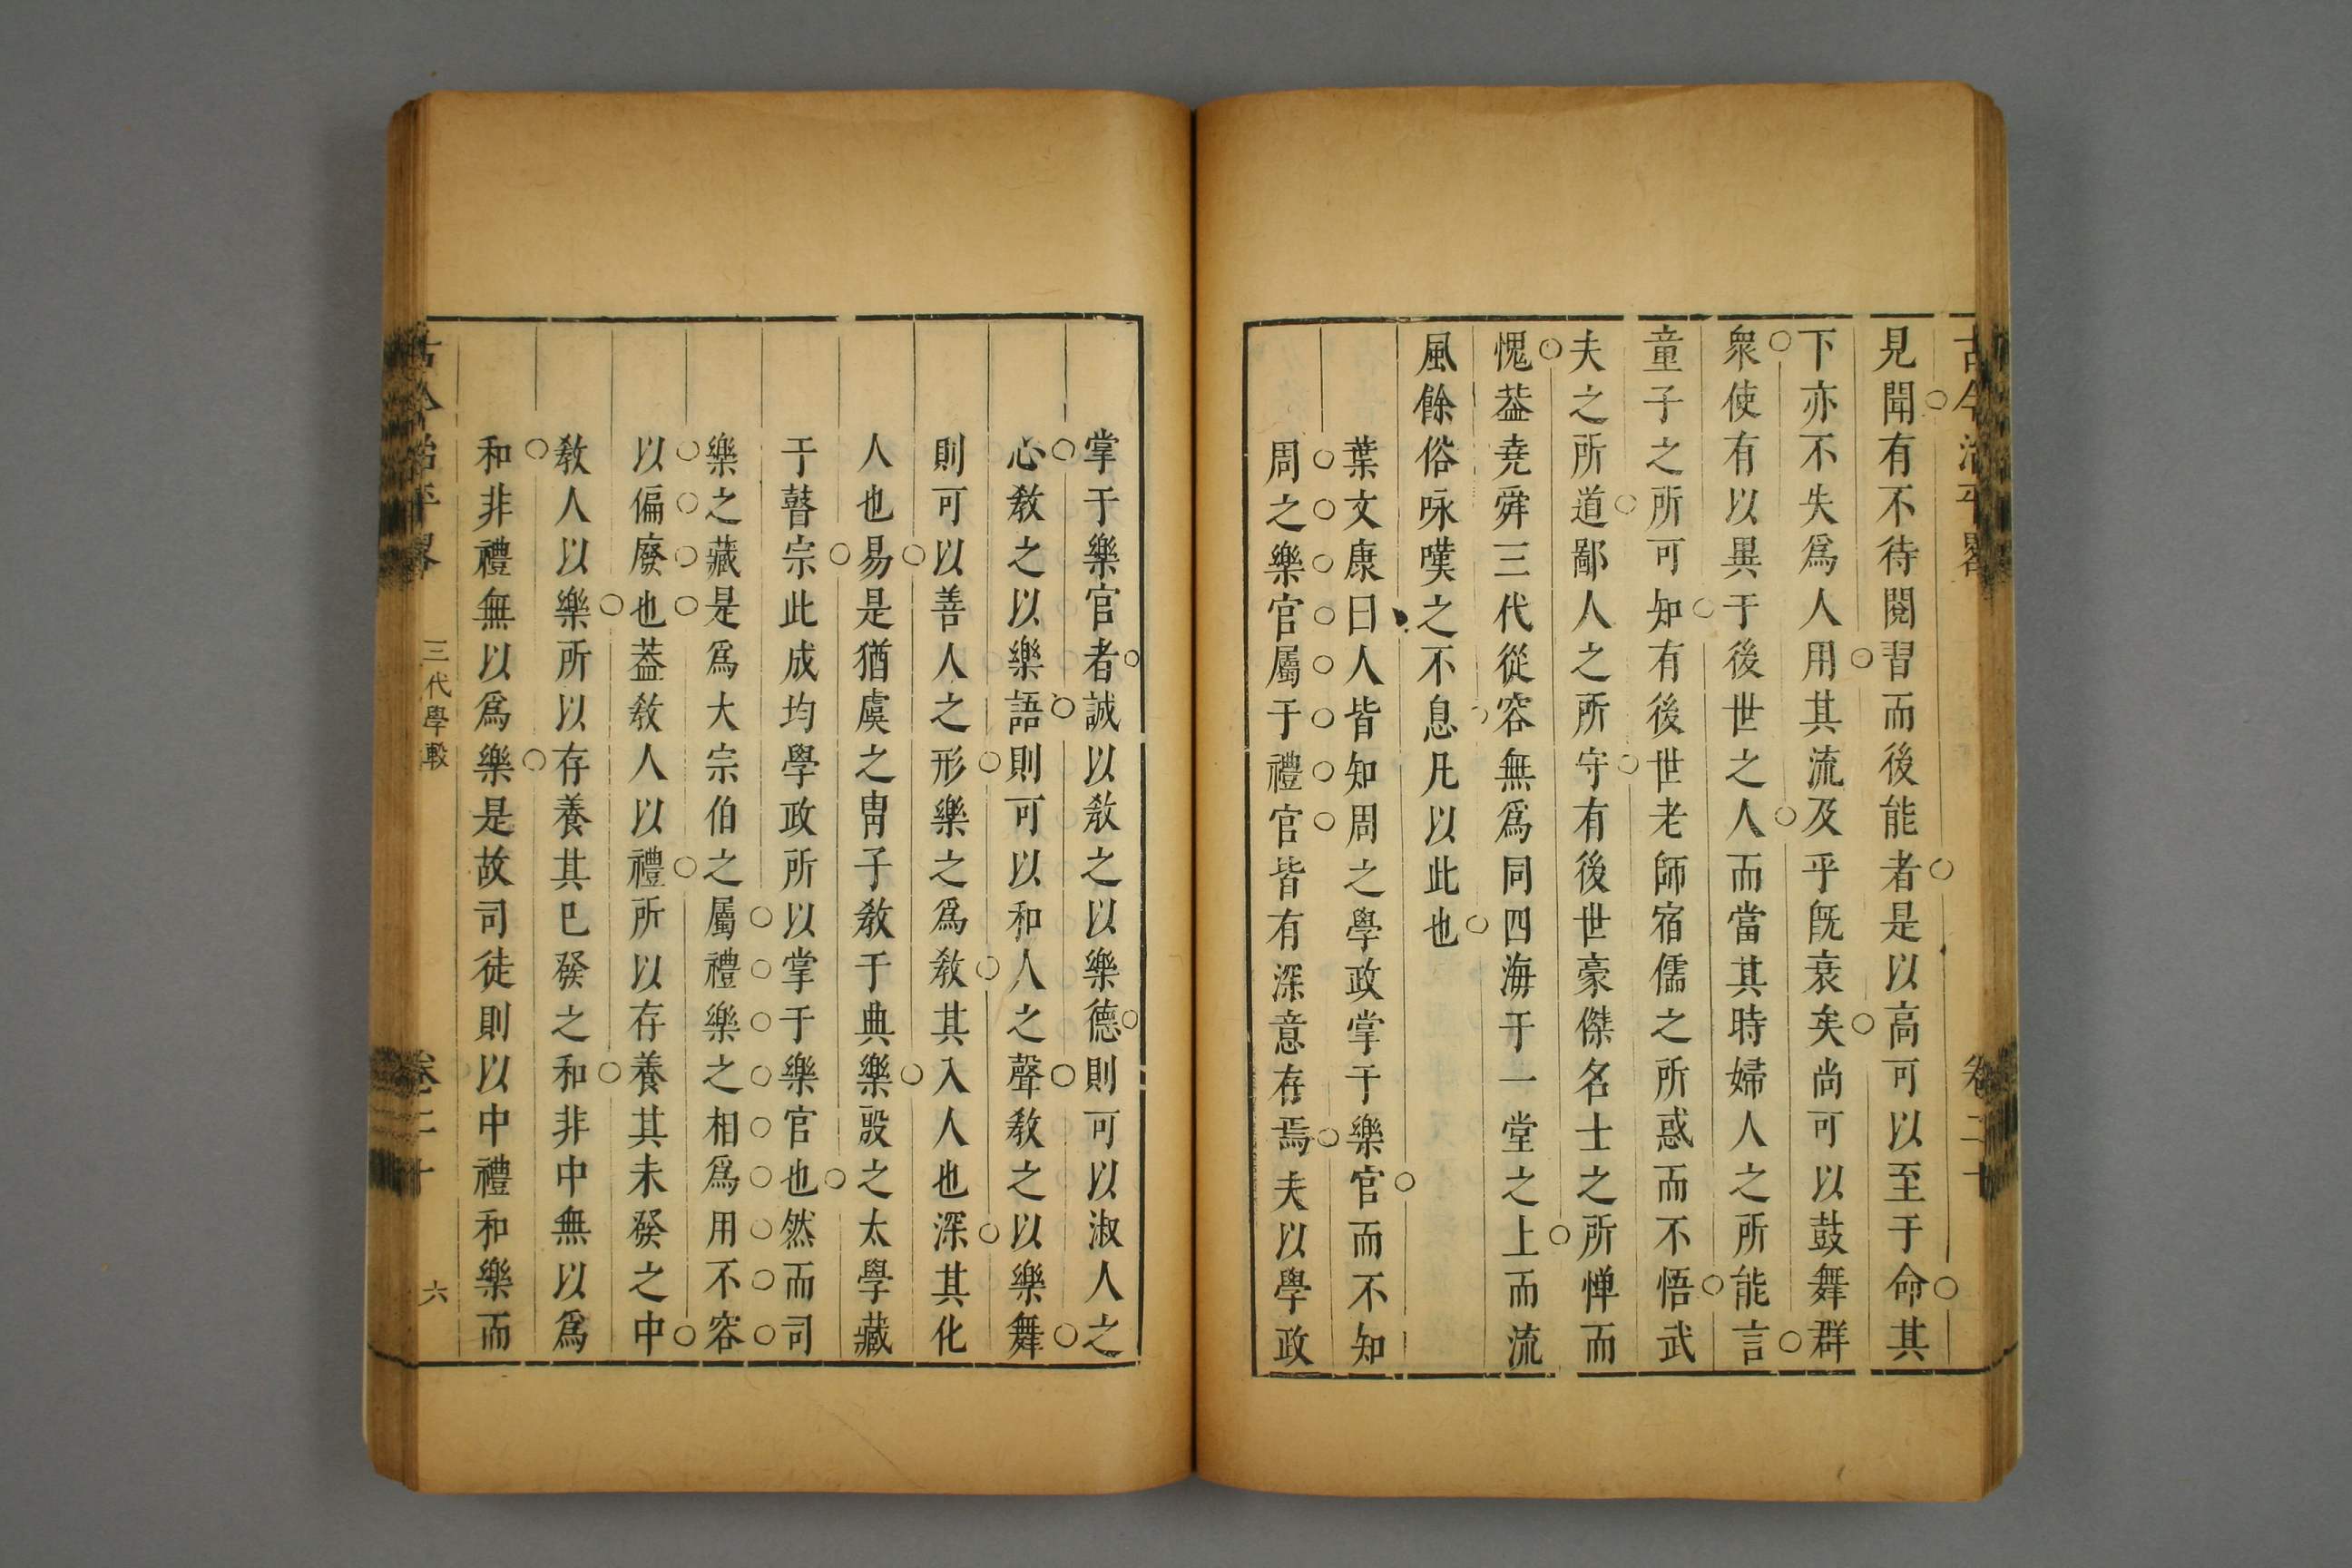 古今治平畧
卷二十
見聞有不待閱習而後能者是以高可以至于命其
下亦不失爲人用其流及乎旣衰矣尚可以鼓舞群
衆使有以異于後世之人而當其時婦人之所能言
童子之所可知有後世老師宿儒之所惑而不悟武
夫之所道鄙人之所守有後世豪傑名士之所憚而
愧葢堯舜三代從容無爲同四海于一堂之上而流
風餘俗咏嘆之不息凡以此也
葉文康曰人皆知周之學政掌于樂官而不知
周之樂官屬于禮官皆有深意存焉夫以學政
掌于樂官者誠以敎之以樂德則可以淑人之
心敎之以樂語則可以和人之聲敎之以樂舞
則可以善人之形樂之爲敎其入人也深其化
人也易是猶虞之冑子敎于典樂殷之太學藏
于瞽宗此成均學政所以掌于樂官也然而司
樂之藏是爲大宗伯之屬禮樂之相爲用不容
以偏廢也葢敎人以禮所以存養其未發之中
敎人以樂所以存養其已發之和非中無以爲
和非禮無以爲樂是故司徒則以中禮和樂而
古今治平畧
三代學
卷二十
六